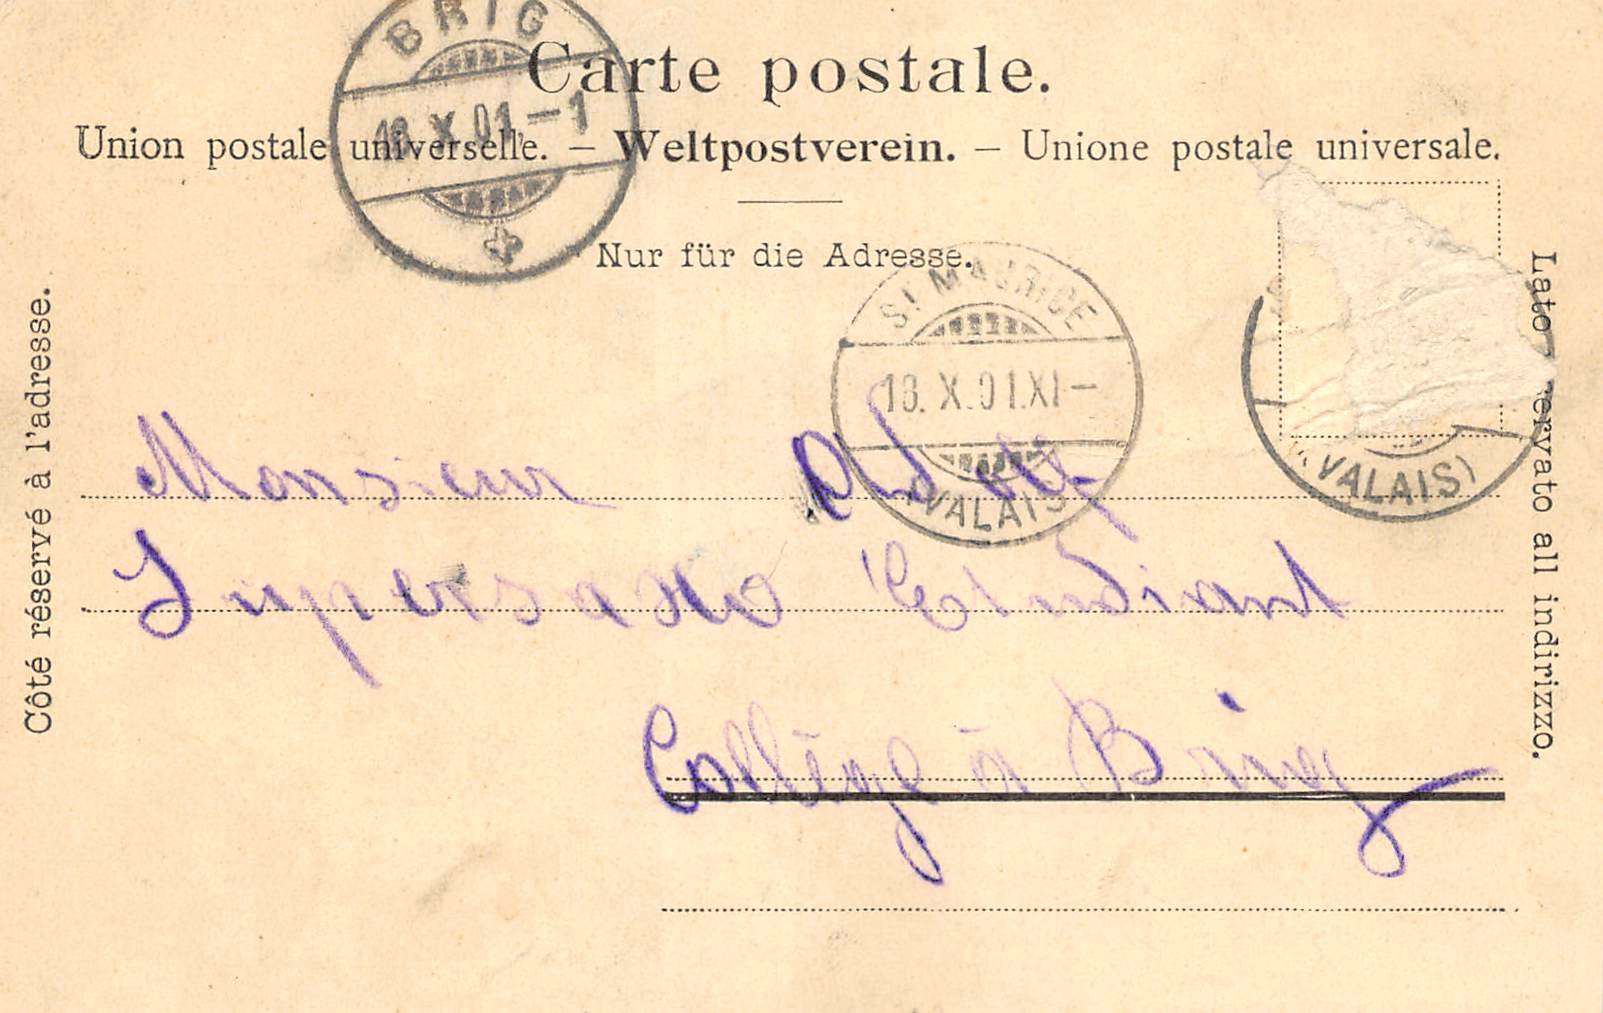 BRIG
Carte postale.
18. X. 01 – 1
Union postale universelle. – Weltpostverein. – Unione postale universale.
Nur für die Adresse.
ST MAURICE
18. X. 01. XI –
(VALAIS)
(VALAIS)
Côté réservé à l'adresse.
Lato ervato all indirizzo.
Monsieur
Supersaxo Etudiant
Collège à Brig